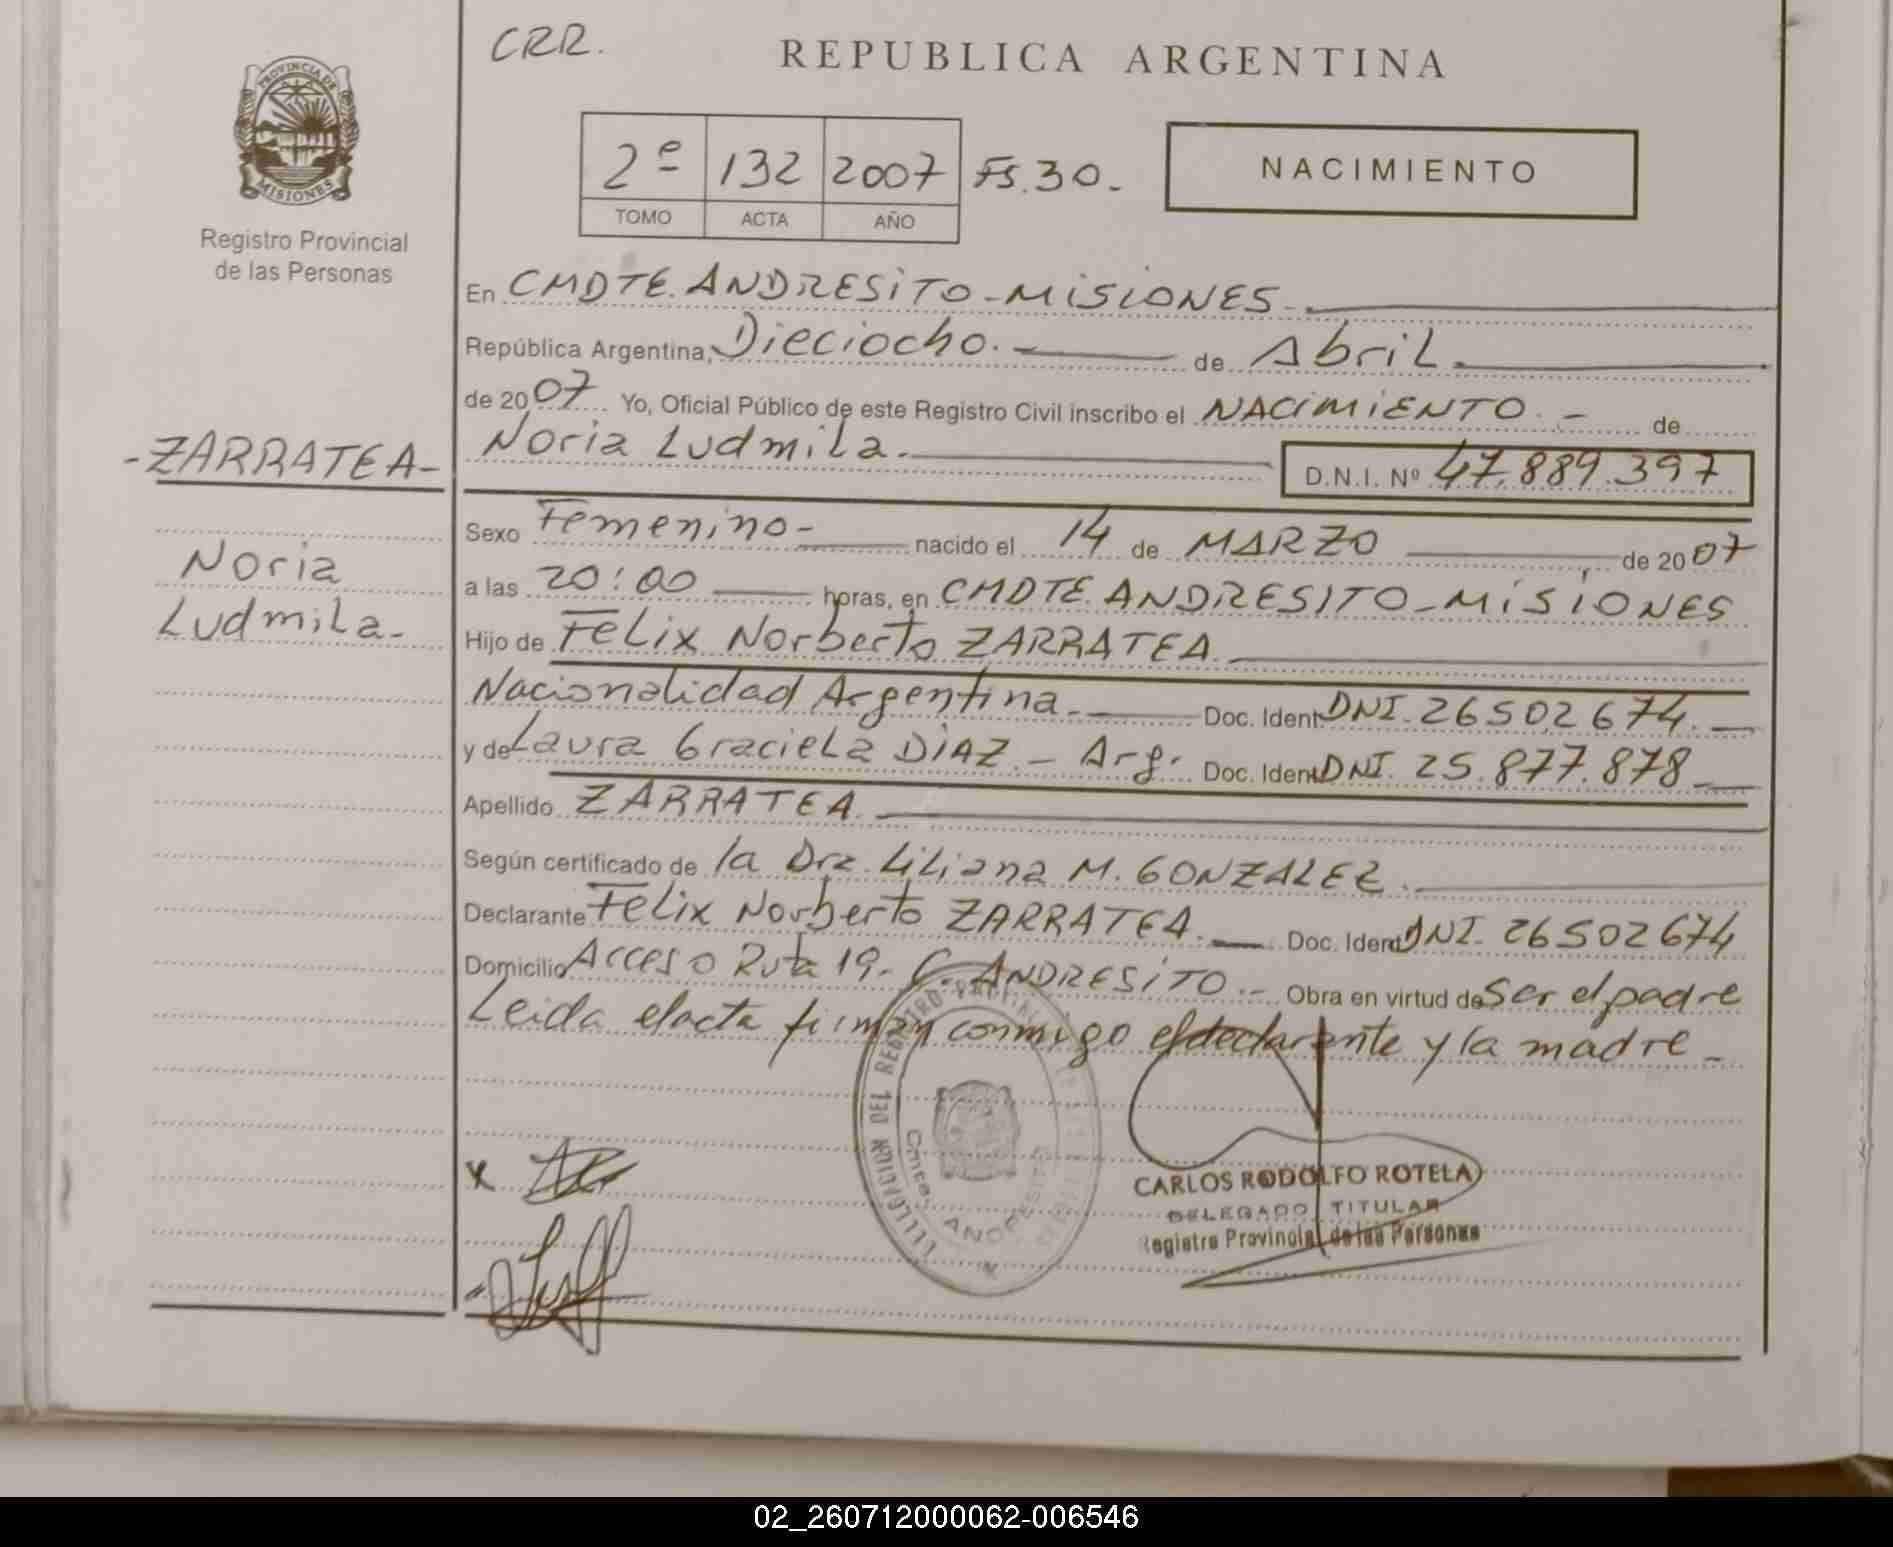 CRR.
REPUBLICA ARGENTINA
PROVINCIA DE
MISIONES
Registro Provincial
de las Personas
2º 132 2007 Fs. 30.-
TOMO ACTA AÑO
NACIMIENTO
En CMDTE. ANDRESITO - MISIONES
República Argentina, Dieciocho. de Abril.
de 2007 Yo, Oficial Público de este Registro Civil inscribo el NACIMIENTO. - de
-ZARRATEA-
Noria Ludmila. D.N.I. Nº 47.889.397
Noria
Ludmila.-
Sexo Femenino- nacido el 14 de MARZO de 2007
a las 20:00 horas, en CMDTE ANDRESITO - MISIONES
Hijo de Felix Norberto ZARRATEA.
Nacionalidad Argentina. Doc. Ident DNI. 26502674.
y de Laura Graciela DIAZ. - Arg. Doc. Ident DNI. 25.877.878
Apellido ZARRATEA.
Según certificado de la Dra. Liliana M. GONZALEZ.
Declarante Felix Norberto ZARRATEA. Doc. Ident DNI. 26502674
Domicilio Acceso Ruta 19. C. ANDRESITO. - Obra en virtud de Ser el padre
Leida el acta firman conmigo el declarante y la madre -
DEL REGISTRO
Cmte. ANDRESITO
x
CARLOS RODOLFO ROTELA
DELEGADO TITULAR
Registro Provincial de las Personas
02_260712000062-006546